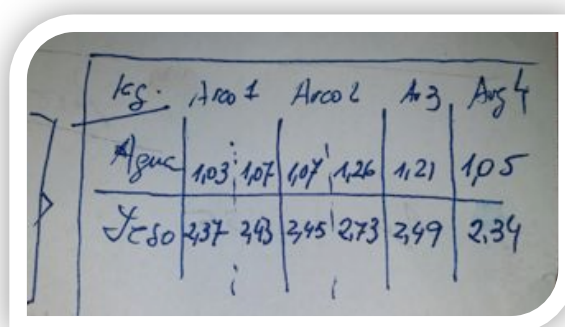 kg. Arco 1 Arco 2 Ar 3 Arg 4
Agua 1,03 1,07 1,07 1,26 1,21 1,05
Yeso 2,37 2,43 2,45 2,73 2,49 2.34